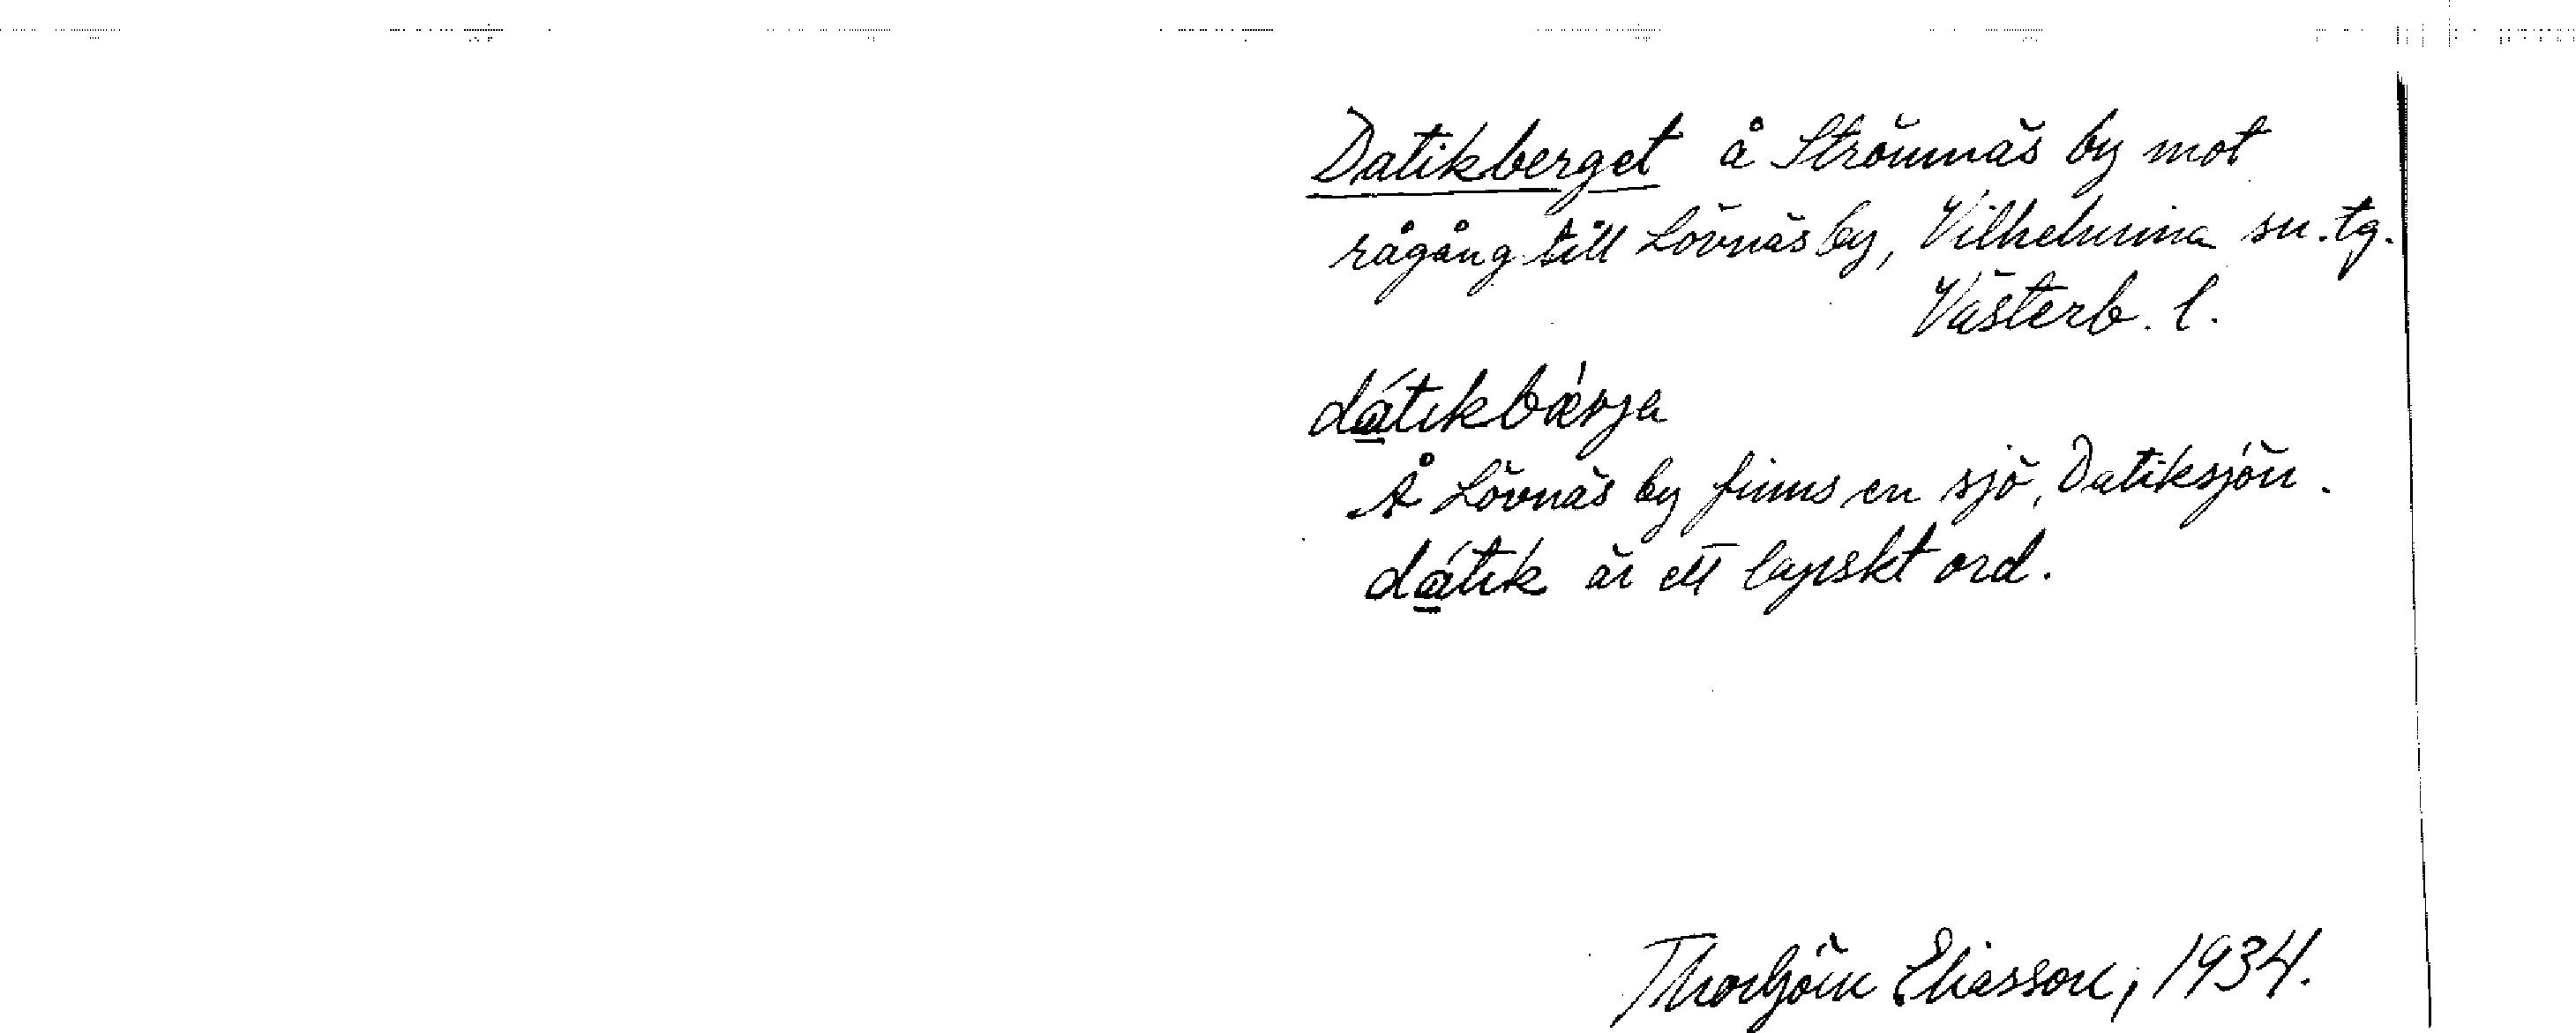 Datikberget å Strömnäs by mot
rågång till Lövnäs by, Vilhelmina sn. tg.
Västerb. l.
dátikbærja
Å Lövnäs by finns en sjö, Datiksjön.
dátik är ett lapskt ord.
Thorbjörn Eliasson, 1934.